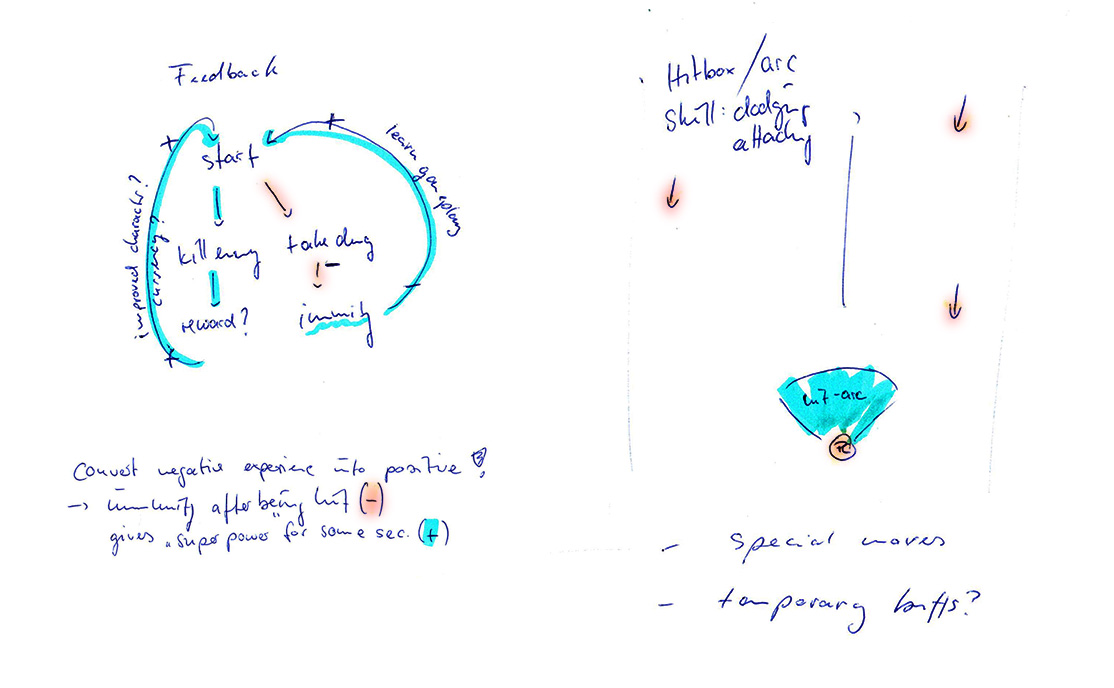 Feedback
start
kill enemy
reward?
take dmg
immunity
improved characts?
currency?
learn gameplay
+
+
+
-
-
Convert negative experience into positive?
-> immunity after being hit (-)
gives "super power" for some sec. (+)
· Hitbox/arc
Skill: dodging
attacking
hit-arc
PC
- special moves
- temporary buffs?